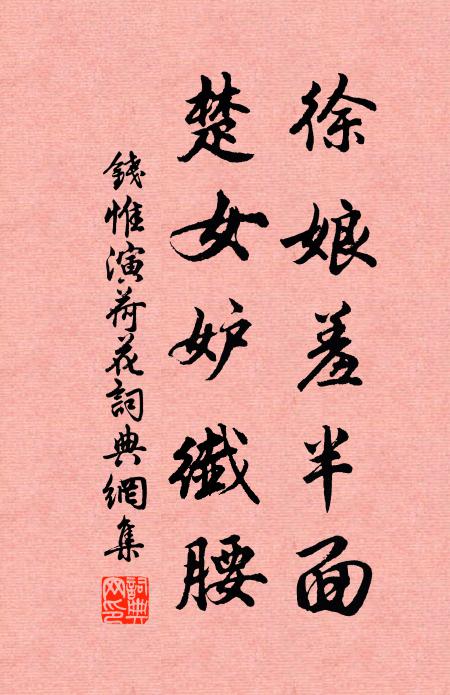 徐娘羞半面
楚女妒纖腰
錢惟演荷花詞典網集
詞典网印